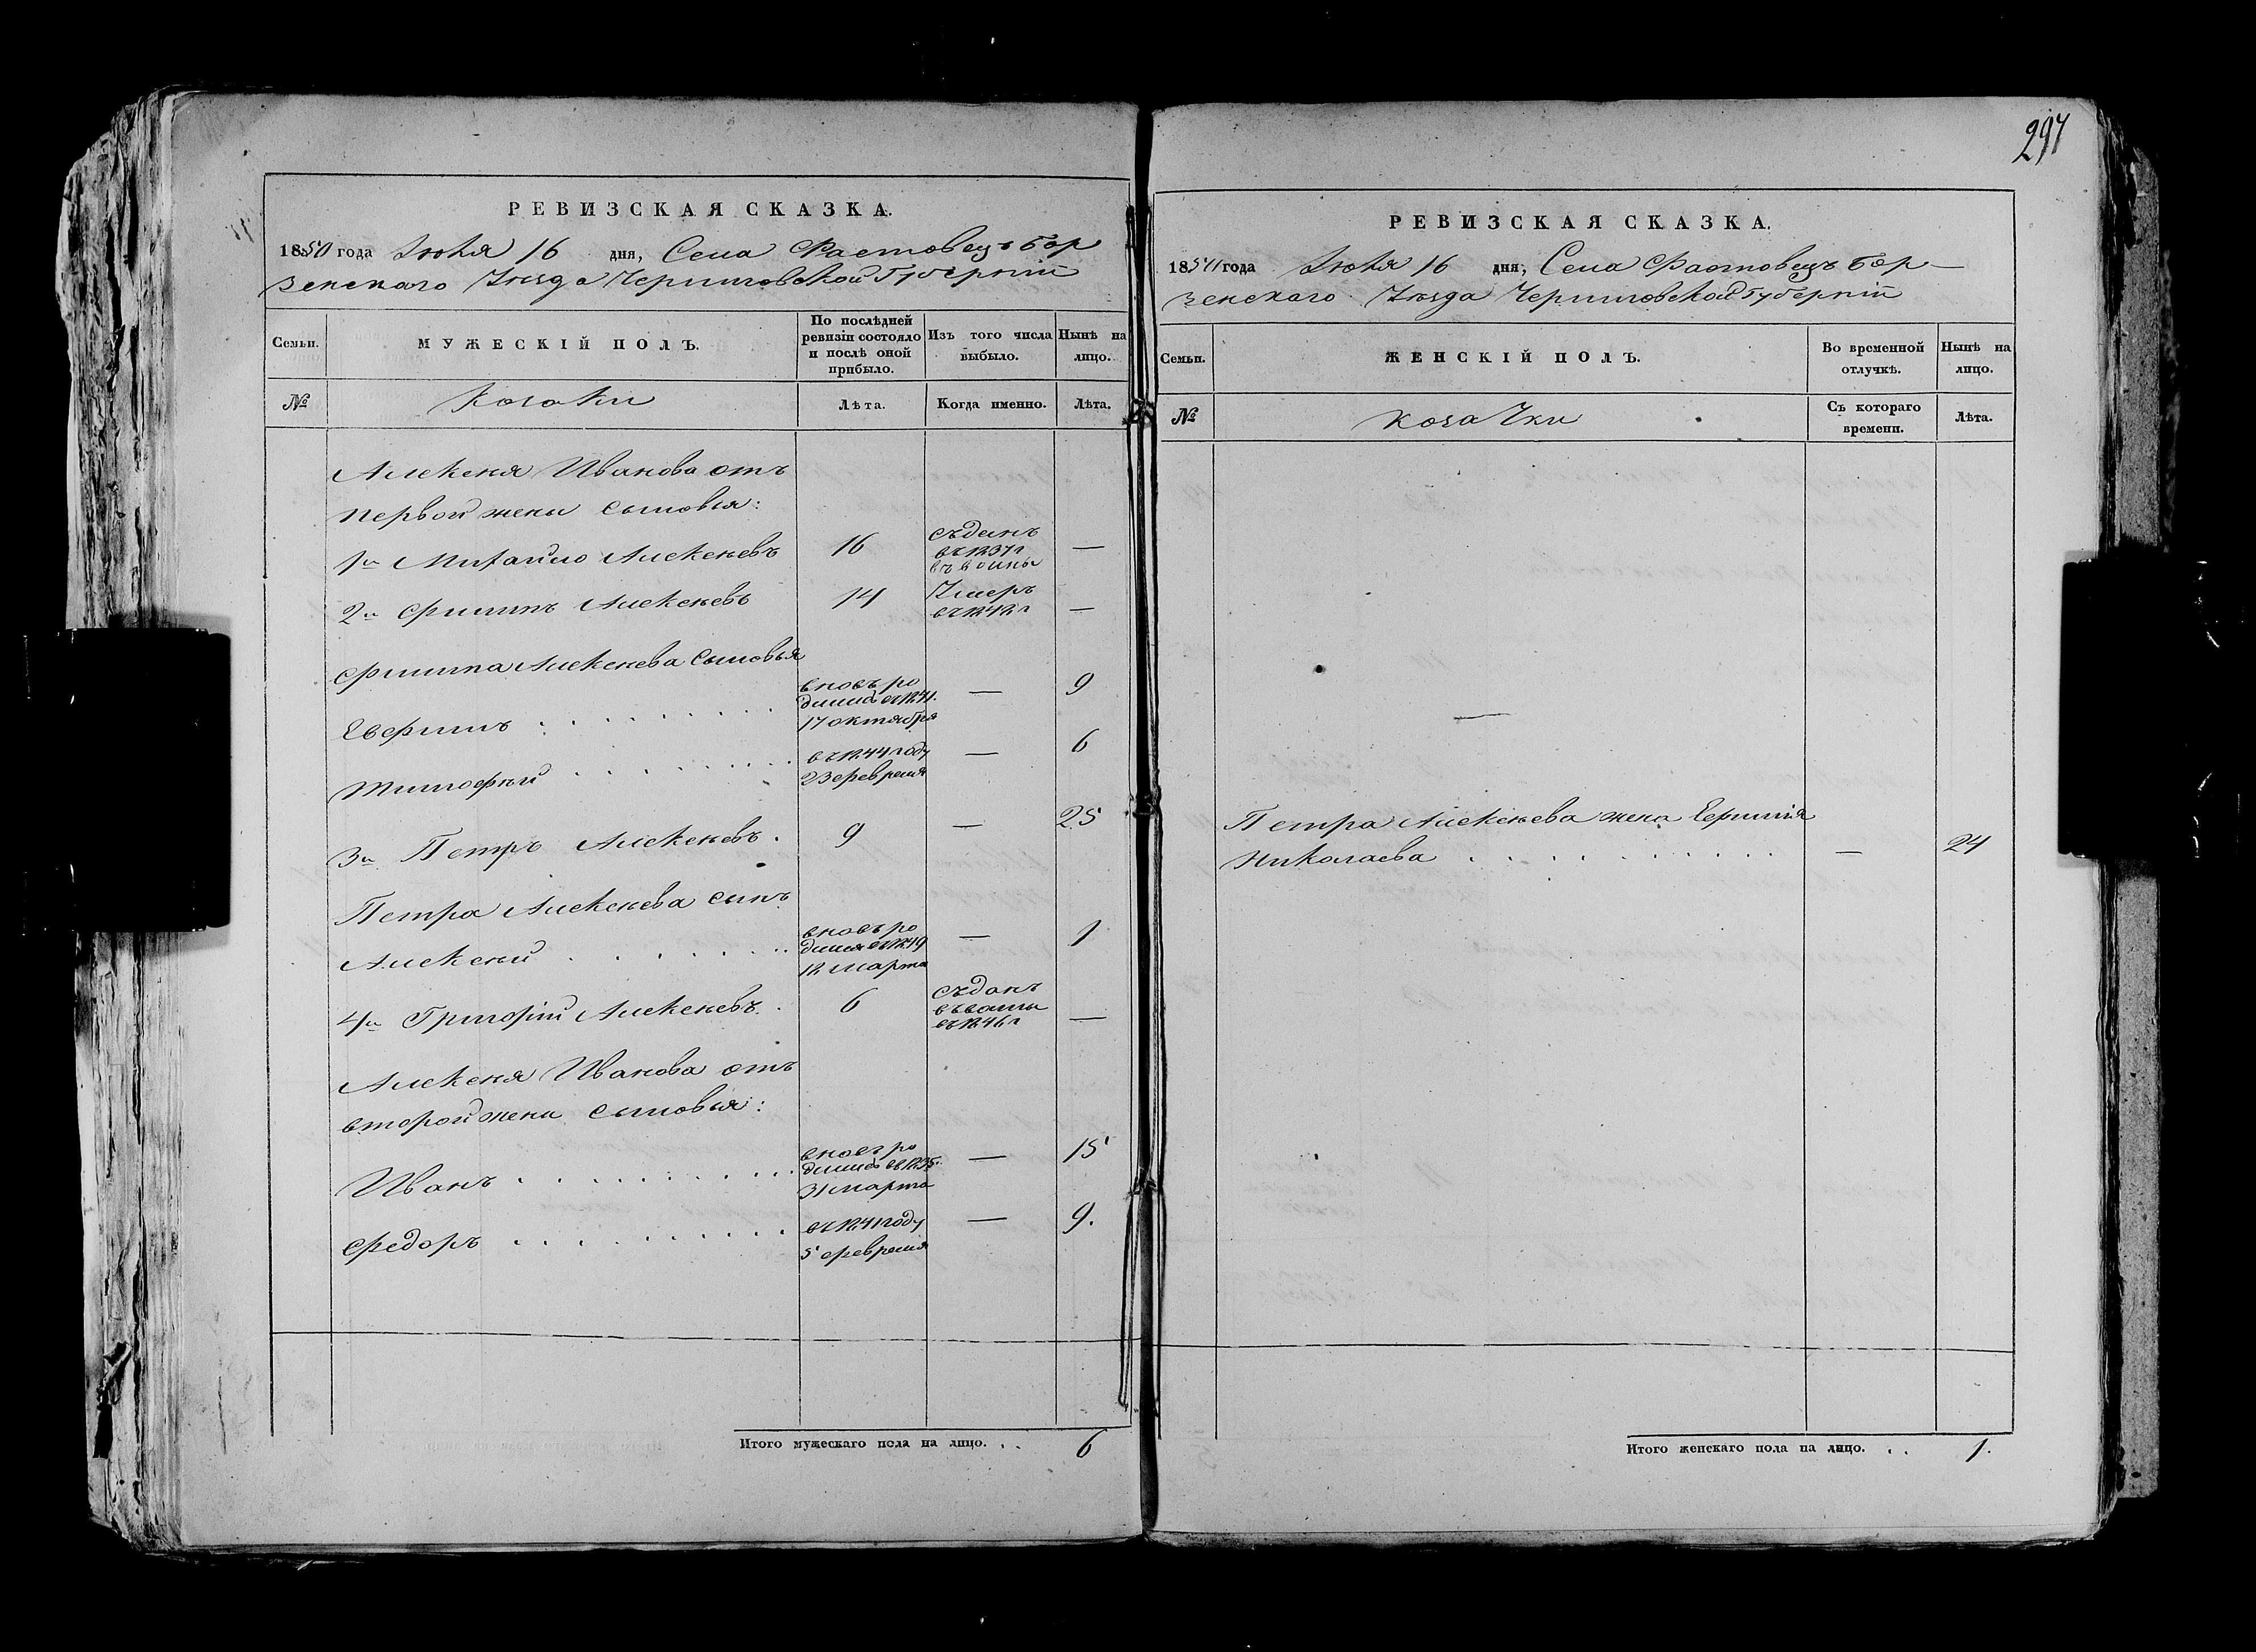 297
РЕВИЗСКАЯ СКАЗКА.
1850 года Іюня 16 дня, Села Фастовецъ Бор
зенскаго Уѣзда Черниговской Губерніи
Семьи.
МУЖЕСКІЙ ПОЛЪ.
По послѣдней
ревизіи состояло
и послѣ оной
прибыло.
Изъ того числа
выбыло.
Нынѣ на
лицо.
№
Козаки
Лѣта.
Когда именно.
Лѣта.
Алексея Иванова отъ
первой жены сыновья:
1й Михайло Алексѣевъ 16
съданъ
въ 1837 г
въ воины
—
2й Филипъ Алексѣевъ 14
Умеръ
въ 1842 г
—
Филипа Алексѣева сыновья
Евфимъ
вновь ро
дился въ 1841.
17 октября
— 9
Тимофѣй
въ 1844 году
23 февраля
— 6
3й Петръ Алексѣевъ. 9 — 25
Петра Алексѣева сынъ
Алексѣй
вновь ро
дился въ 1849
12 марта
— 1
4й Григорій Алексѣевъ. 6
съданъ
въ воины
въ 1846 г
—
Алексея Иванова отъ
второй жены сыновья:
Иванъ
вновь ро
дился въ 1835.
31 марта
— 15
Федоръ
въ 1841 году
5 февраля
— 9.
Итого мужескаго пола на лицо. . . 6
РЕВИЗСКАЯ СКАЗКА.
1850 года Іюня 16 дня, Села Фастовецъ Бор-
зенскаго Уѣзда Черниговской Губерніи
Семьи.
ЖЕНСКІЙ ПОЛЪ.
Во временной
отлучкѣ.
Нынѣ на
лицо.
№
козачки
Съ котораго
времени.
Лѣта.
—
Петра Алексѣева жена
Николаева — 24
Итого женскаго пола на лицо. . . 1.